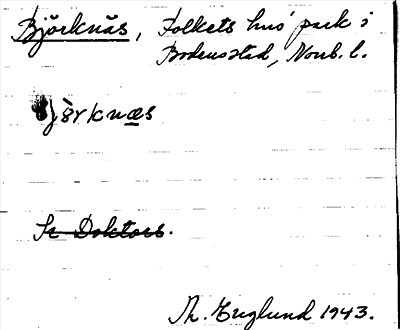 Björknäs, Folkets hus' park i
Bodens stad, Norrb. l.
bjö̀rknæs
Se Doktors.
Th. Englund 1943.